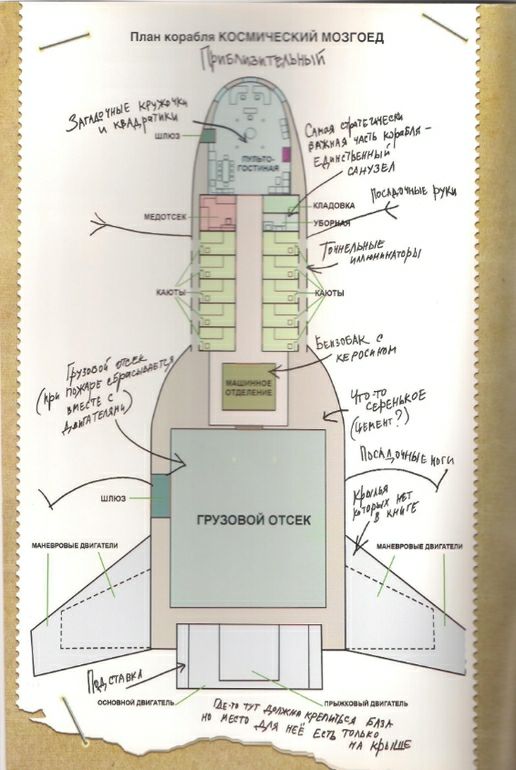 План корабля КОСМИЧЕСКИЙ МОЗГОЕД
Приблизительный
Загадочные кружочки
и квадратики
ШЛЮЗ
ПУЛЬТО-
ГОСТИНАЯ
Самая стратегически
важная часть корабля –
единственный
санузел
МЕДОТСЕК
КЛАДОВКА
УБОРНАЯ
Посадочные руки
Тоннельные
иллюминаторы
КАЮТЫ
КАЮТЫ
Бензобак с
керосином
МАШИННОЕ
ОТДЕЛЕНИЕ
Грузовой отсек
(при пожаре сбрасывается
вместе с
двигателями)
Что-то
серенькое
(цемент?)
Посадочные ноги
ШЛЮЗ
ГРУЗОВОЙ ОТСЕК
Крылья
которых нет
в книге
МАНЕВРОВЫЕ ДВИГАТЕЛИ
МАНЕВРОВЫЕ ДВИГАТЕЛИ
Подставка
ОСНОВНОЙ ДВИГАТЕЛЬ
ПРЫЖКОВЫЙ ДВИГАТЕЛЬ
Где-то тут должна крепиться база
но место для неё есть только
на крыше